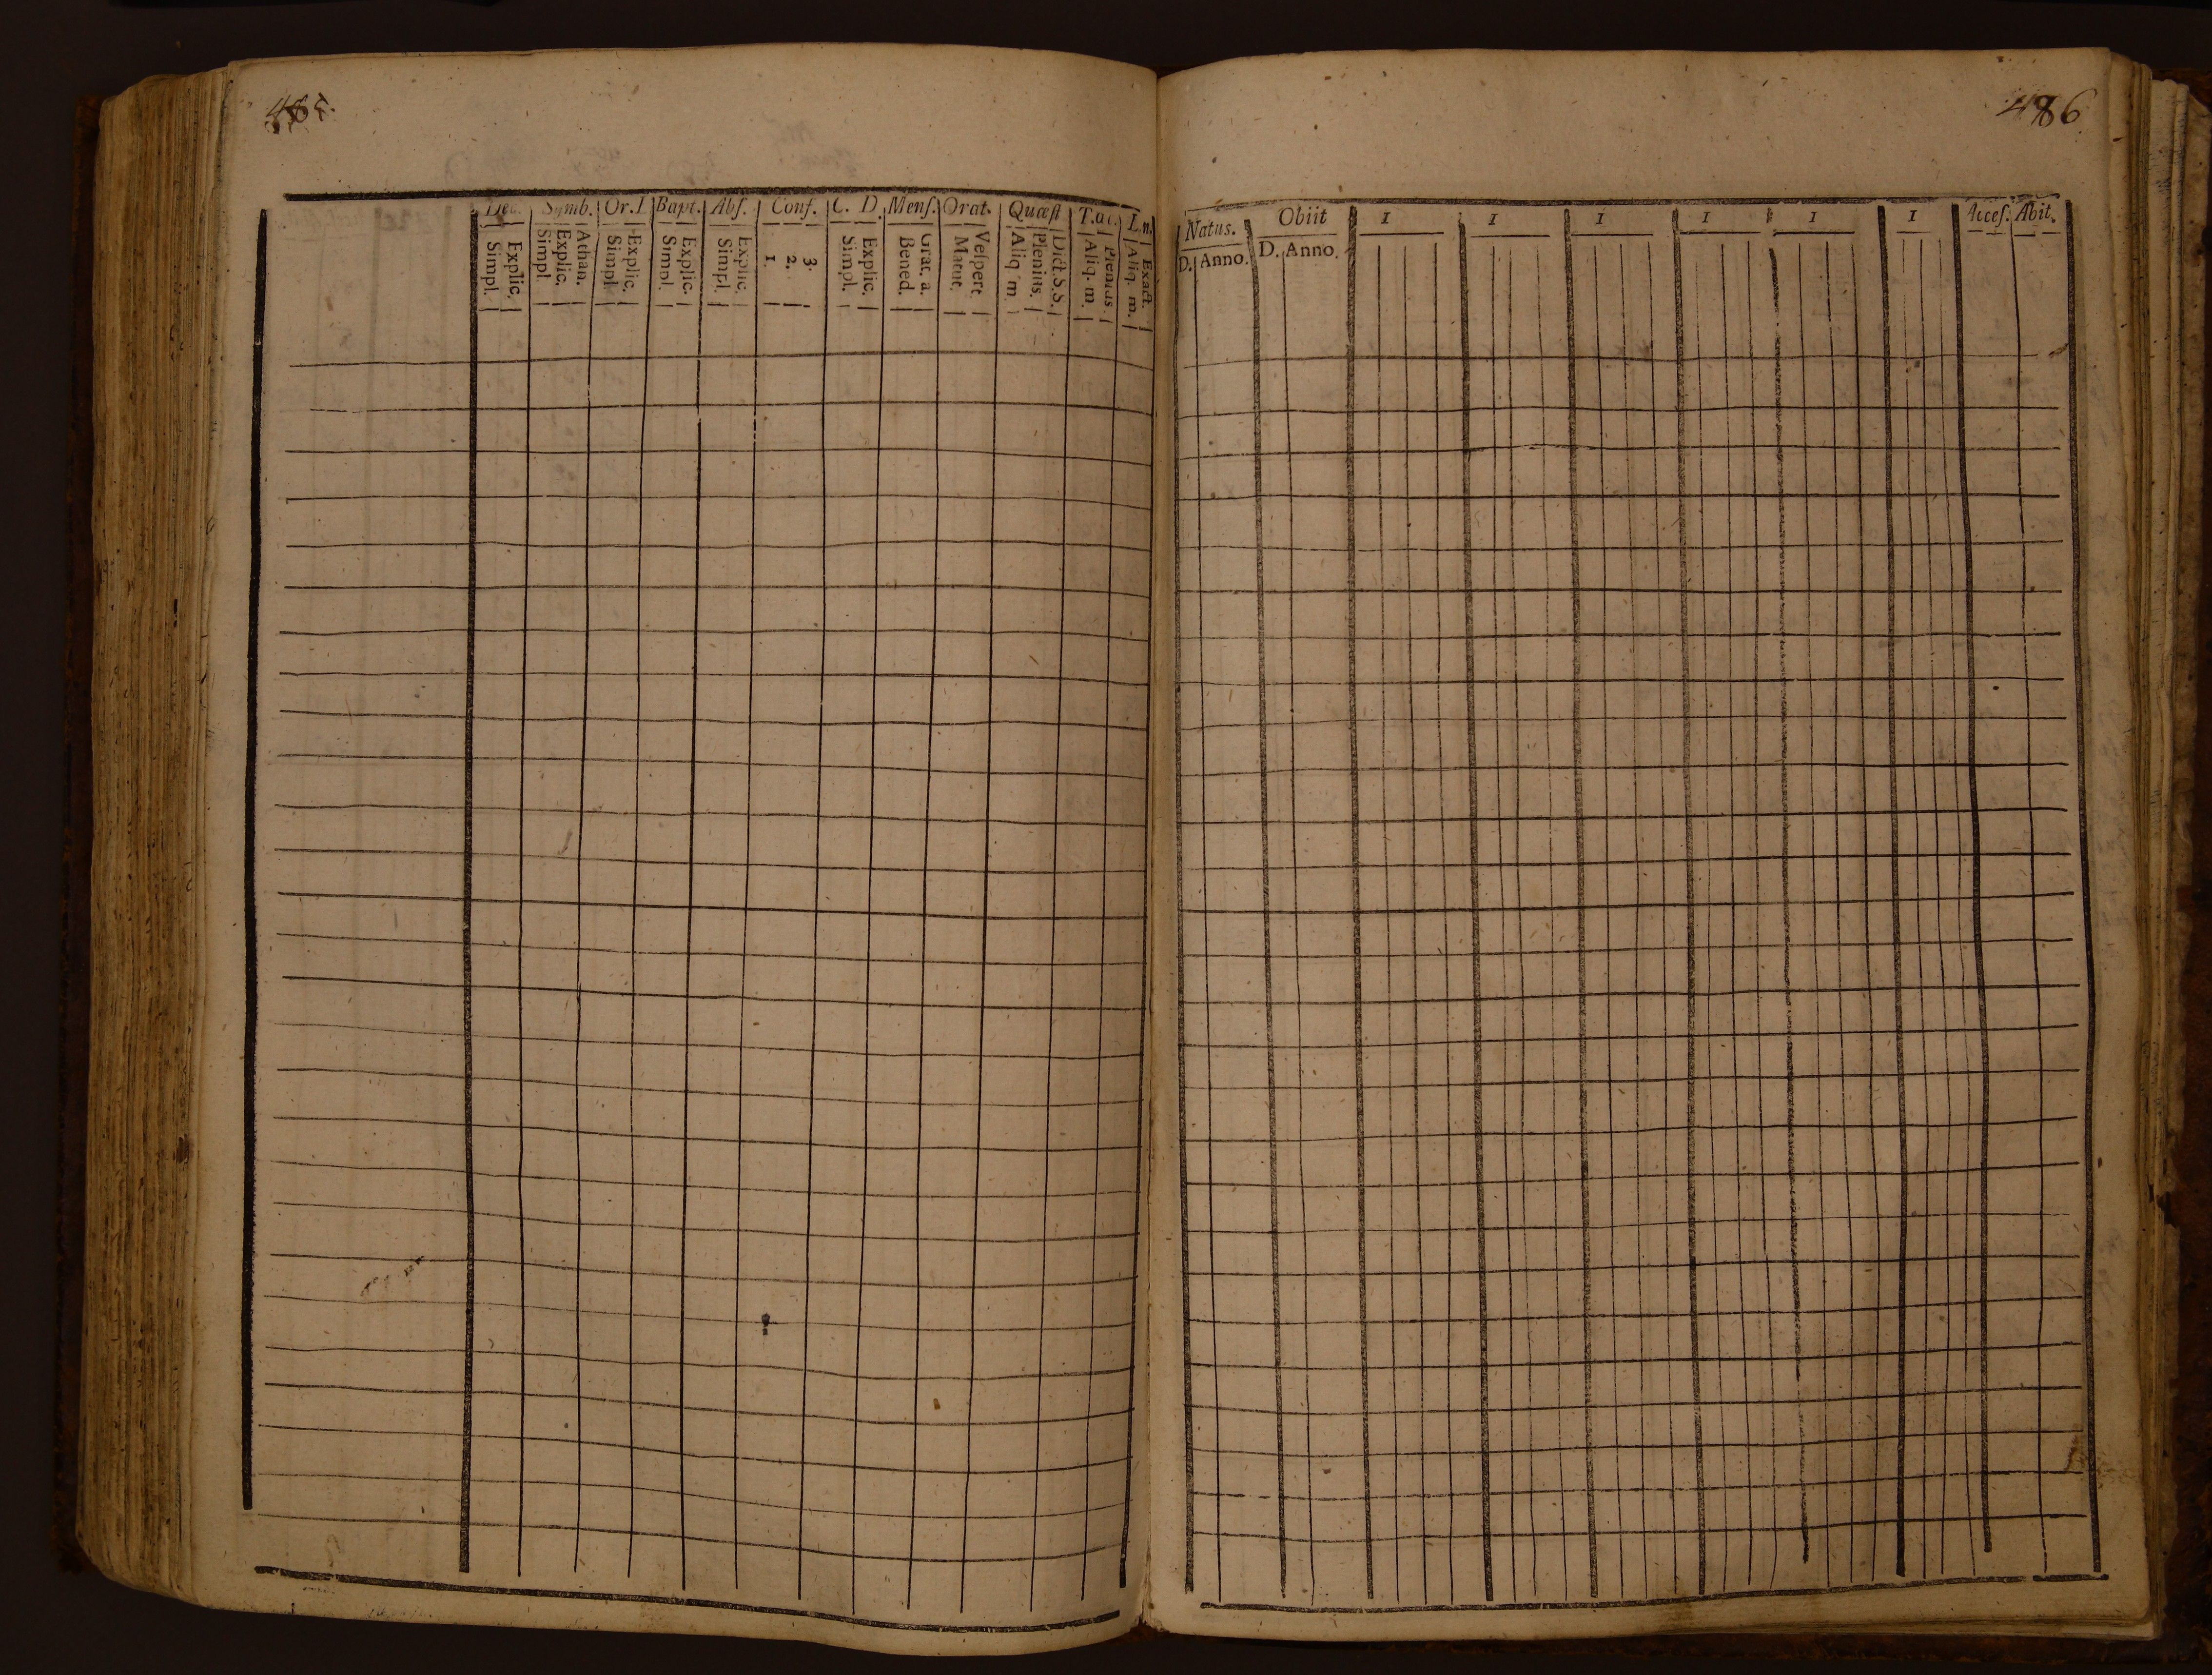 485.
Dec. Symb. Or. I Bapt. Abſ. Conf. C. D. Menſ. Orat. Quæſt T.æc. L.n.
Simpl. Explic. Simpl. Explic. Athan. Simpl. Explic. Simpl. Explic. Simpl. Explic. 1. 2. 3. Simpl. Explic. Bened. Grat. a. Matut. Veſpert. Aliq. m. Plenius. Dict. S.S. Aliq. m. Plenius. Aliq. m. Exact.
486
Natus. Obiit 1 1 1 1 1 1 Acceſ. Abit.
D. Anno. D. Anno.